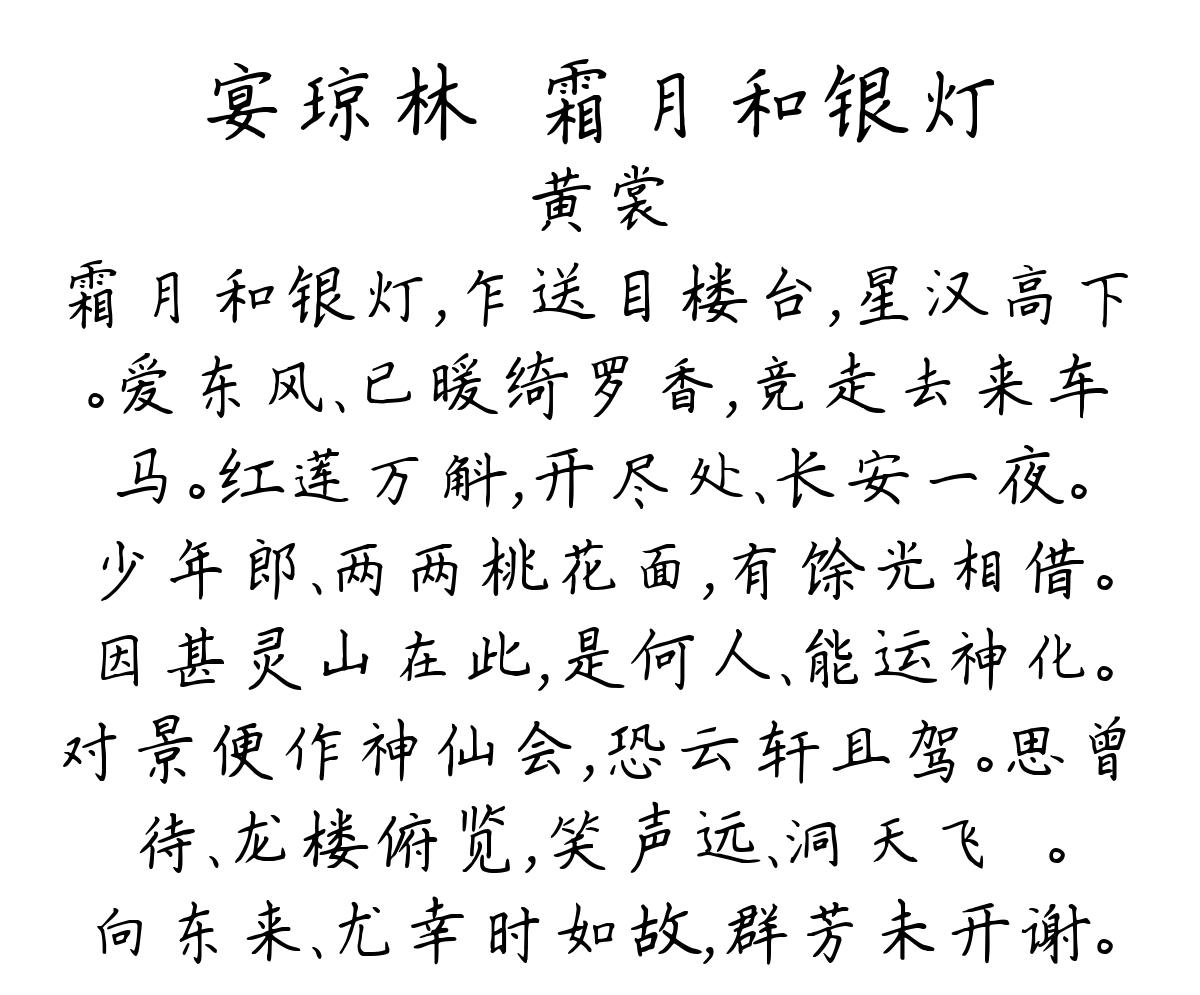 宴琼林 霜月和银灯
黄裳
霜月和银灯,乍送目楼台,星汉高下
。爱东风、已暖绮罗香,竞走去来车
马。红莲万斛,开尽处、长安一夜。
少年郎、两两桃花面,有馀光相借。
因甚灵山在此,是何人、能运神化。
对景便作神仙会,恐云轩且驾。思曾
待、龙楼俯览,笑声远、洞天飞 。
向东来、尤幸时如故,群芳未开谢。